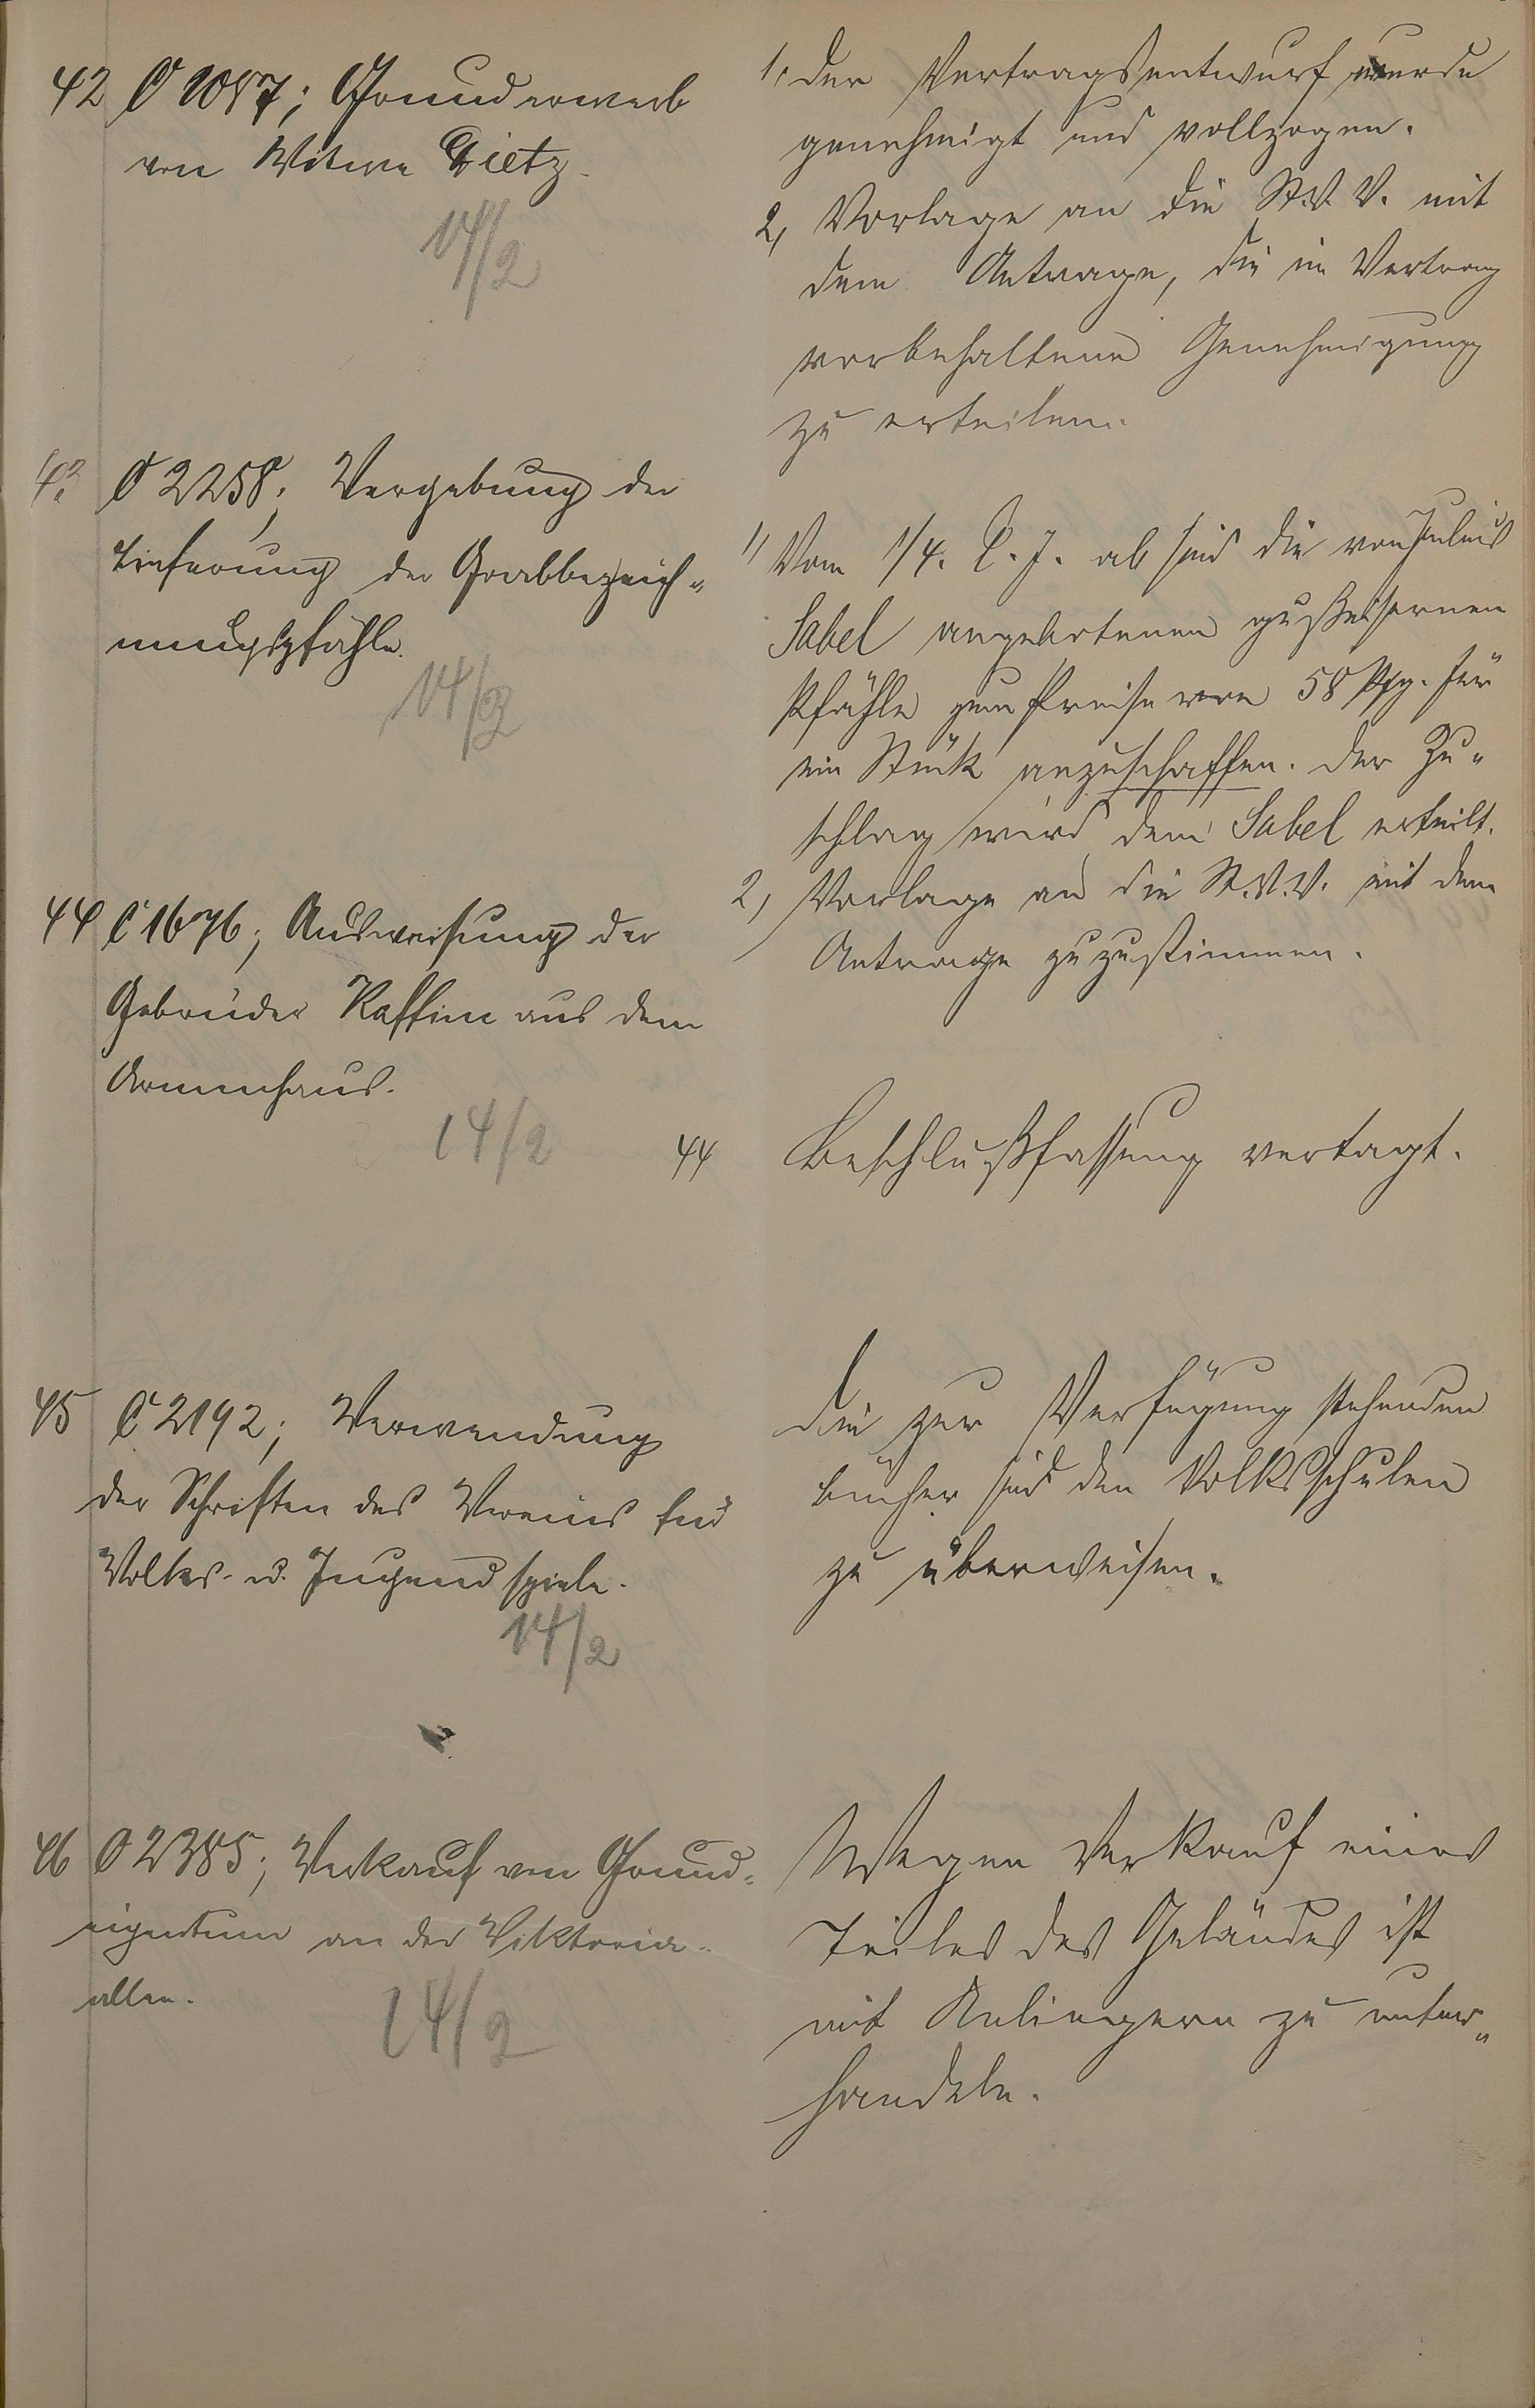 42 C 1087; Grunderwerb
von Witwe Dietz.
14/2
1. Der Vertragsentwurf wurde
genehmigt und vollzogen.
2, Vorlage an die St.V.V. mit
dem Antrage, die im Vertrag
vorbehaltene Genehmigung
zu erteilen.
43 C 2258; Vergebung der
Lieferung der Grabbezeich-
nungspfähle.
14/2
1, Vom 1/4. l. J. ab sind die von Julius
Sabel angebotenen gußeisernen
Pfähle zum Preise von 58 Pfg. für
ein Stück anzuschaffen. Der Zu-
schlag wird dem Sabel erteilt.
2, Vorlage an die St.V.V. mit dem
Antrage zuzustimmen.
44 C 1676; Ausweisung der
Gebrüder Kaffine aus dem
Armenhaus.
14/2
44 Beschlußfassung vertagt.
45 C 2192; Verwendung
der Schriften des Vereins für
Volks- u. Jugendspiele.
14/2
Die zur Verfügung stehenden
Bücher sind den Volksschulen
zu überweisen.
46 C 2385; Verkauf von Grund-
eigentum an der Viktoria-
allee.
14/2
Wegen Verkauf eines
Teiles des Geländes ist
mit Anliegern zu unter-
handeln.